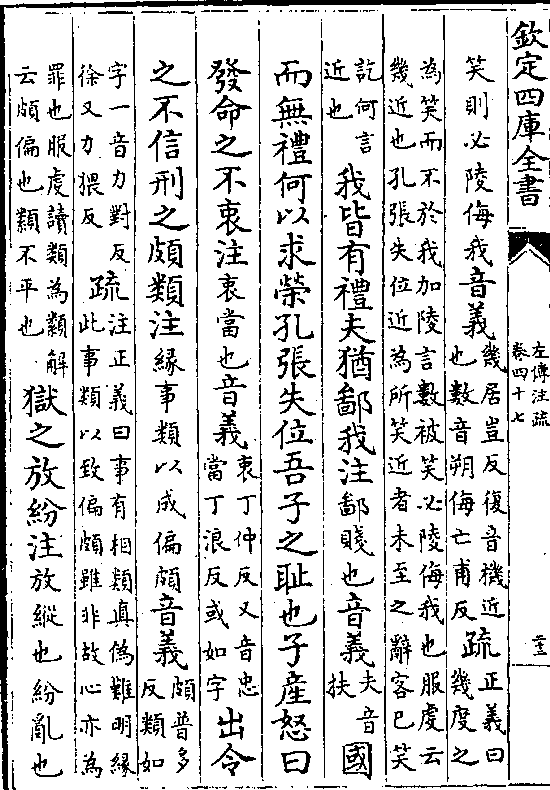 欽定四庫全書
左傳注疏
卷四十七
二十三
笑則必陵侮我音義幾居豈反復音機近
也數音朔侮亡甫反疏正義曰
幾度之
為笑而不於我加陵言數被笑必陵侮我也服虔云
幾近也孔張失位近為所笑近者未至之辭客已笑
訖何言
近也我皆有禮夫猶鄙我注鄙賤也音義夫音
扶國
而無禮何以求榮孔張失位吾子之恥也子產怒曰
發命之不衷注衷當也音義衷丁仲反又音忠
當丁浪反或如字出令
之不信刑之頗類注緣事類以成偏頗音義頗普多
反類如
字一音力對反
徐又力猥反疏注正義曰事有相類真偽難明緣
此事類以致偏頗雖非故心亦為
罪也服虔讀類為纇解
云頗偏也纇不平也獄之放紛注放縱也紛亂也